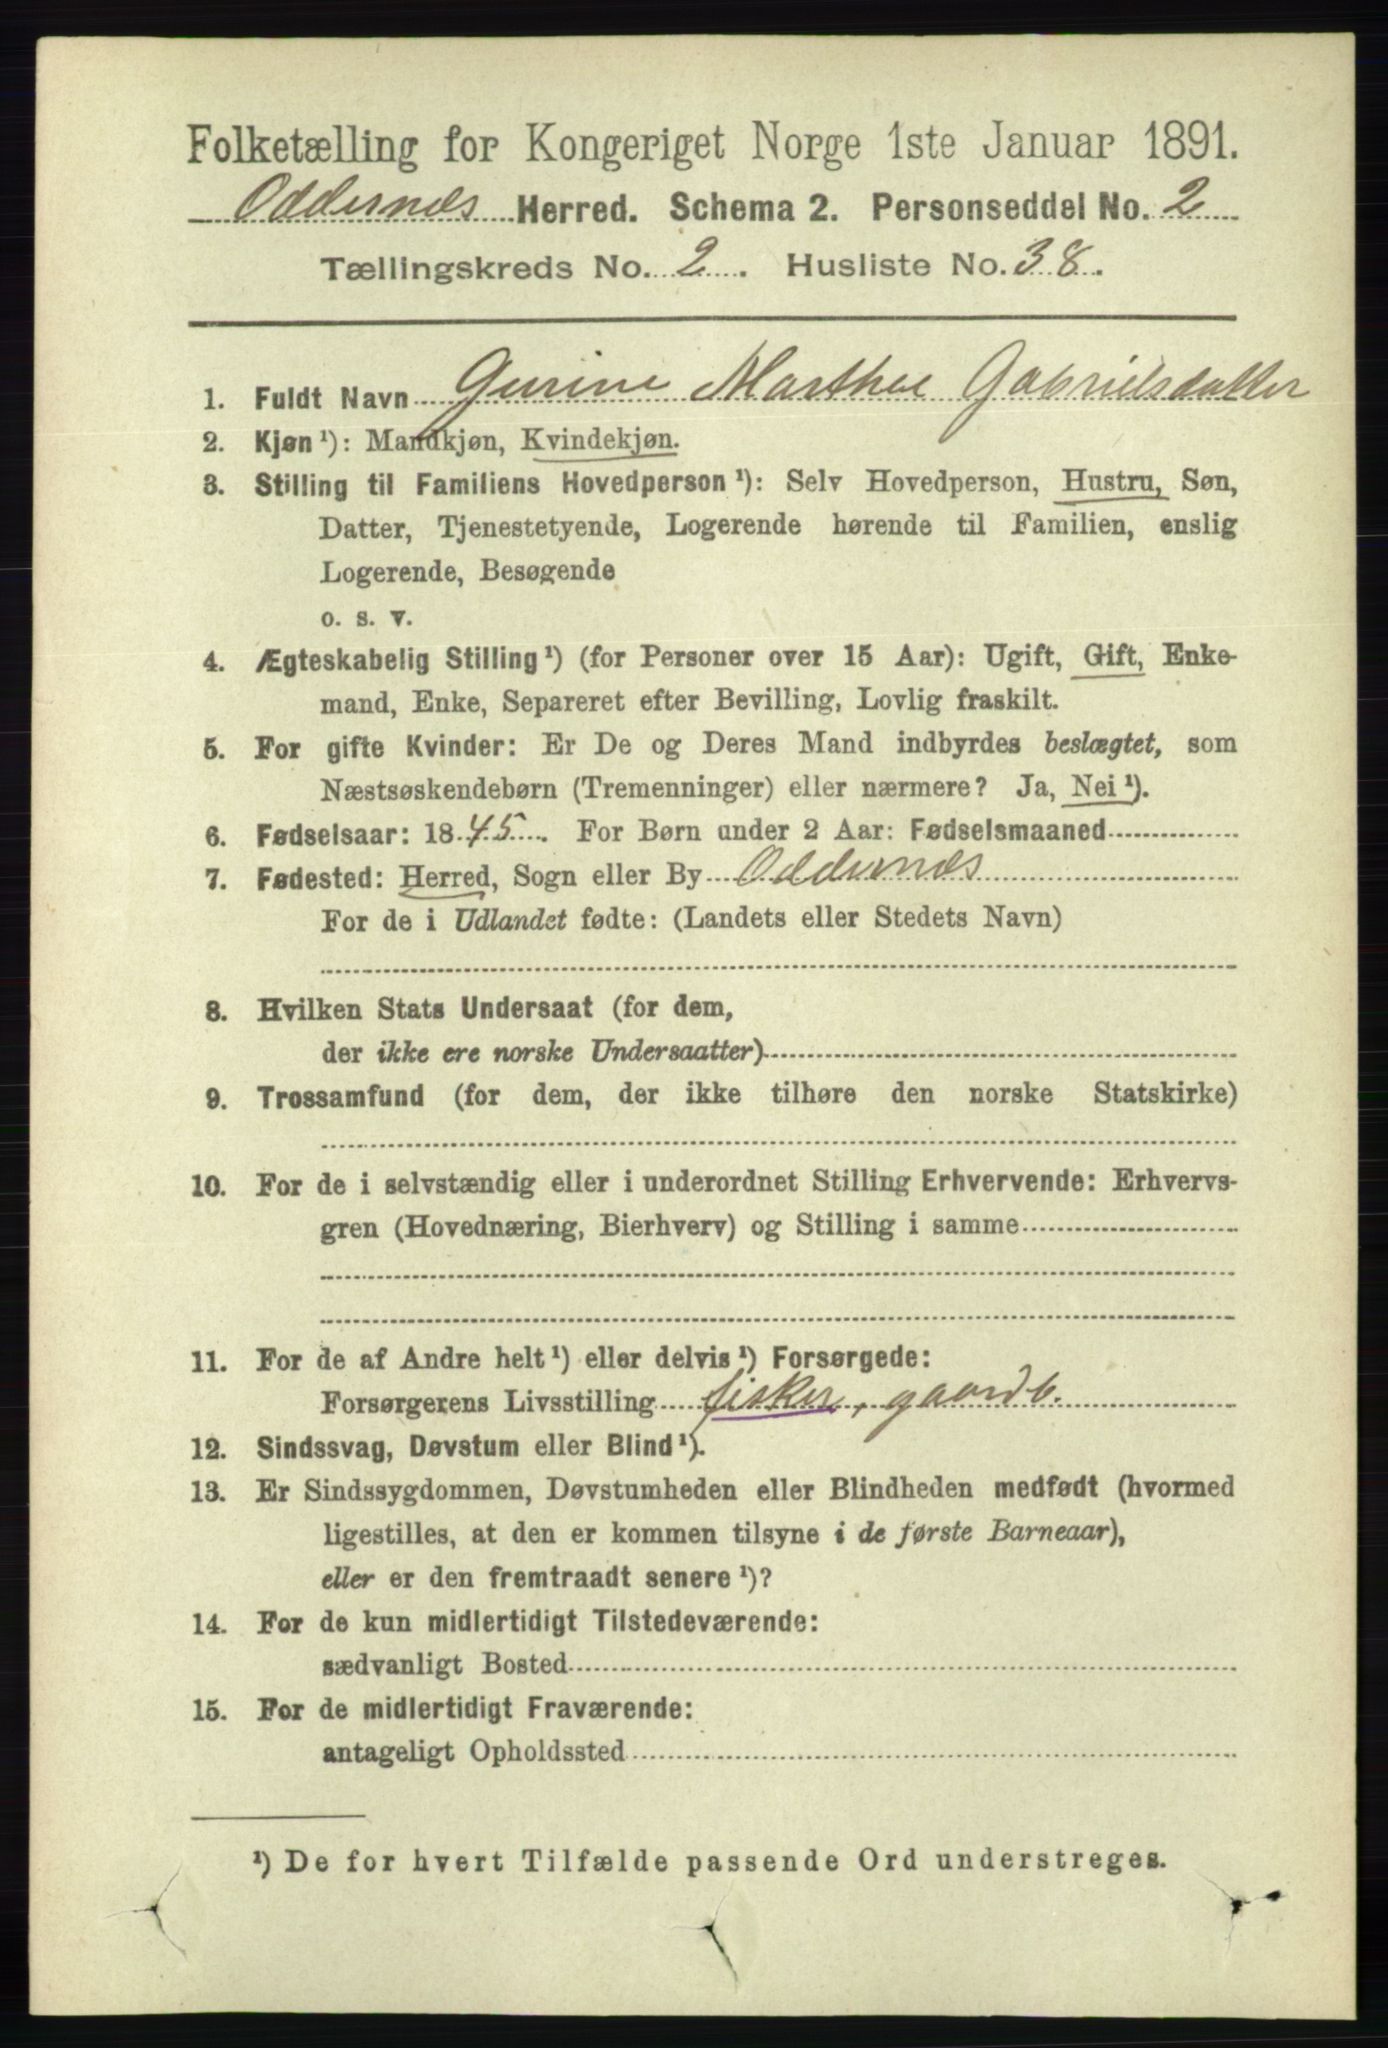 Folketælling for Kongeriget Norge 1ste Januar 1891.
Oddernes Herred. Schema 2. Personseddel No. 2
Tællingskreds No. 2. Husliste No. 38.
1. Fuldt Navn Gurine Marthee Gabrielsdatter
2. Kjøn¹): Mandkjøn, Kvindekjøn.
3. Stilling til Familiens Hovedperson¹): Selv Hovedperson, Hustru, Søn,
Datter, Tjenestetyende, Logerende hørende til Familien, enslig
Logerende, Besøgende
o. s. v.
4. Ægteskabelig Stilling¹) (for Personer over 15 Aar): Ugift, Gift, Enke-
mand, Enke, Separeret efter Bevilling, Lovlig fraskilt.
5. For gifte Kvinder: Er De og Deres Mand indbyrdes beslægtet, som
Næstsøskendebørn (Tremenninger) eller nærmere? Ja, Nei¹).
6. Fødselsaar: 1845. For Børn under 2 Aar: Fødselsmaaned
7. Fødested: Herred, Sogn eller By Oddernes
For de i Udlandet fødte: (Landets eller Stedets Navn)
8. Hvilken Stats Undersaat (for dem,
der ikke ere norske Undersaatter)
9. Trossamfund (for dem, der ikke tilhøre den norske Statskirke)
10. For de i selvstændig eller i underordnet Stilling Erhvervende: Erhvervs-
gren (Hovednæring, Bierhverv) og Stilling i samme
11. For de af Andre helt¹) eller delvis¹) Forsørgede:
Forsørgerens Livsstilling fisker, gaardb.
12. Sindssvag, Døvstum eller Blind¹).
13. Er Sindssygdommen, Døvstumheden eller Blindheden medfødt (hvormed
ligestilles, at den er kommen tilsyne i de første Barneaar),
eller er den fremtraadt senere¹)?
14. For de kun midlertidigt Tilstedeværende:
sædvanligt Bosted
15. For de midlertidigt Fraværende:
antageligt Opholdssted
¹) De for hvert Tilfælde passende Ord understreges.